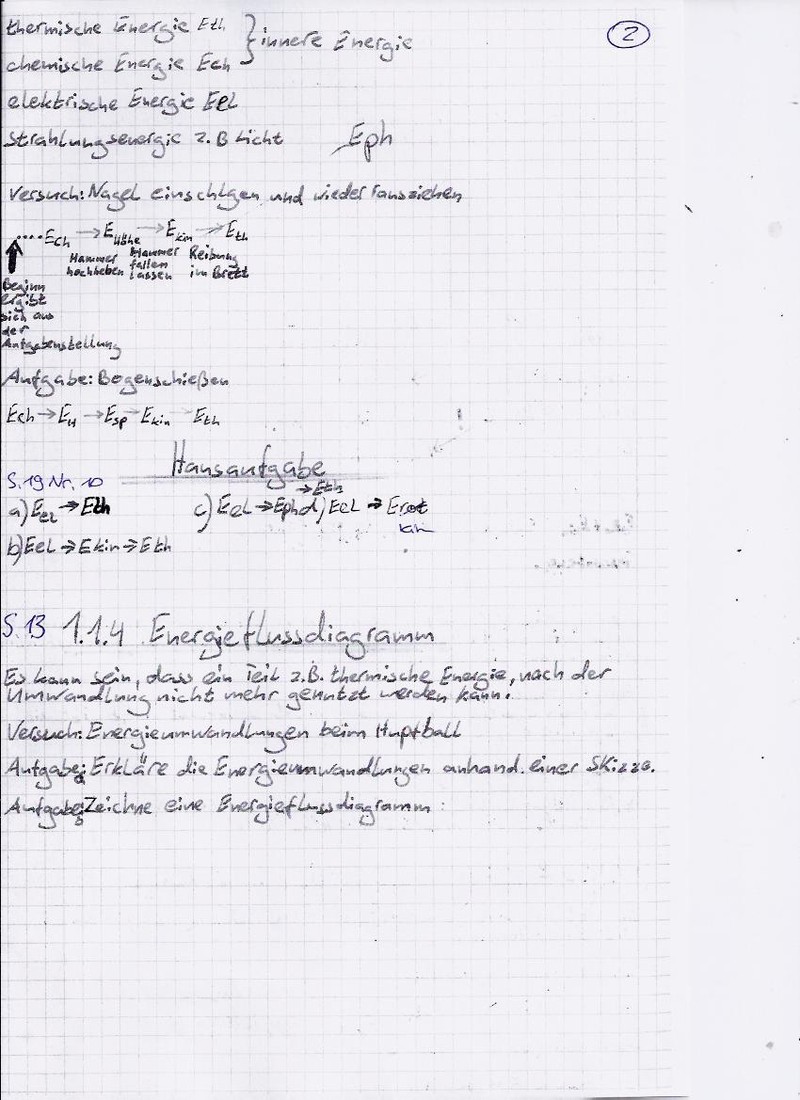 thermische Energie Eth } innere Energie
chemische Energie Ech
2
elektrische Energie Eel
Strahlungsenergie z.B Licht Eph
Versuch: Nagel einschlgen und wieder rausziehen
....Ech → EHöhe → Ekin → Eth
Hammer hochheben Hammer fallen lassen Reibung im Brett
Beginn
ergibt
sich aus
der
Aufgabenstellung
Aufgabe: Bogenschießen
Ech → EH → Esp → Ekin → Eth
Hausaufgabe
S.19 Nr. 10
→ Eth
a) Eel → Eth c) Eel → Eph d) Eel → Erot
kin
b) Eel → Ekin → Eth
S.13 1.1.4 Energieflussdiagramm
Es kann sein, dass ein Teil z.B. thermische Energie, nach der
Umwandlung nicht mehr genutzt werden kann.
Versuch: Energieumwandlungen beim Hüpfball
Aufgabe: Erkläre die Energieumwandlungen anhand einer Skizze.
Aufgabe: Zeichne eine Energieflussdiagramm: